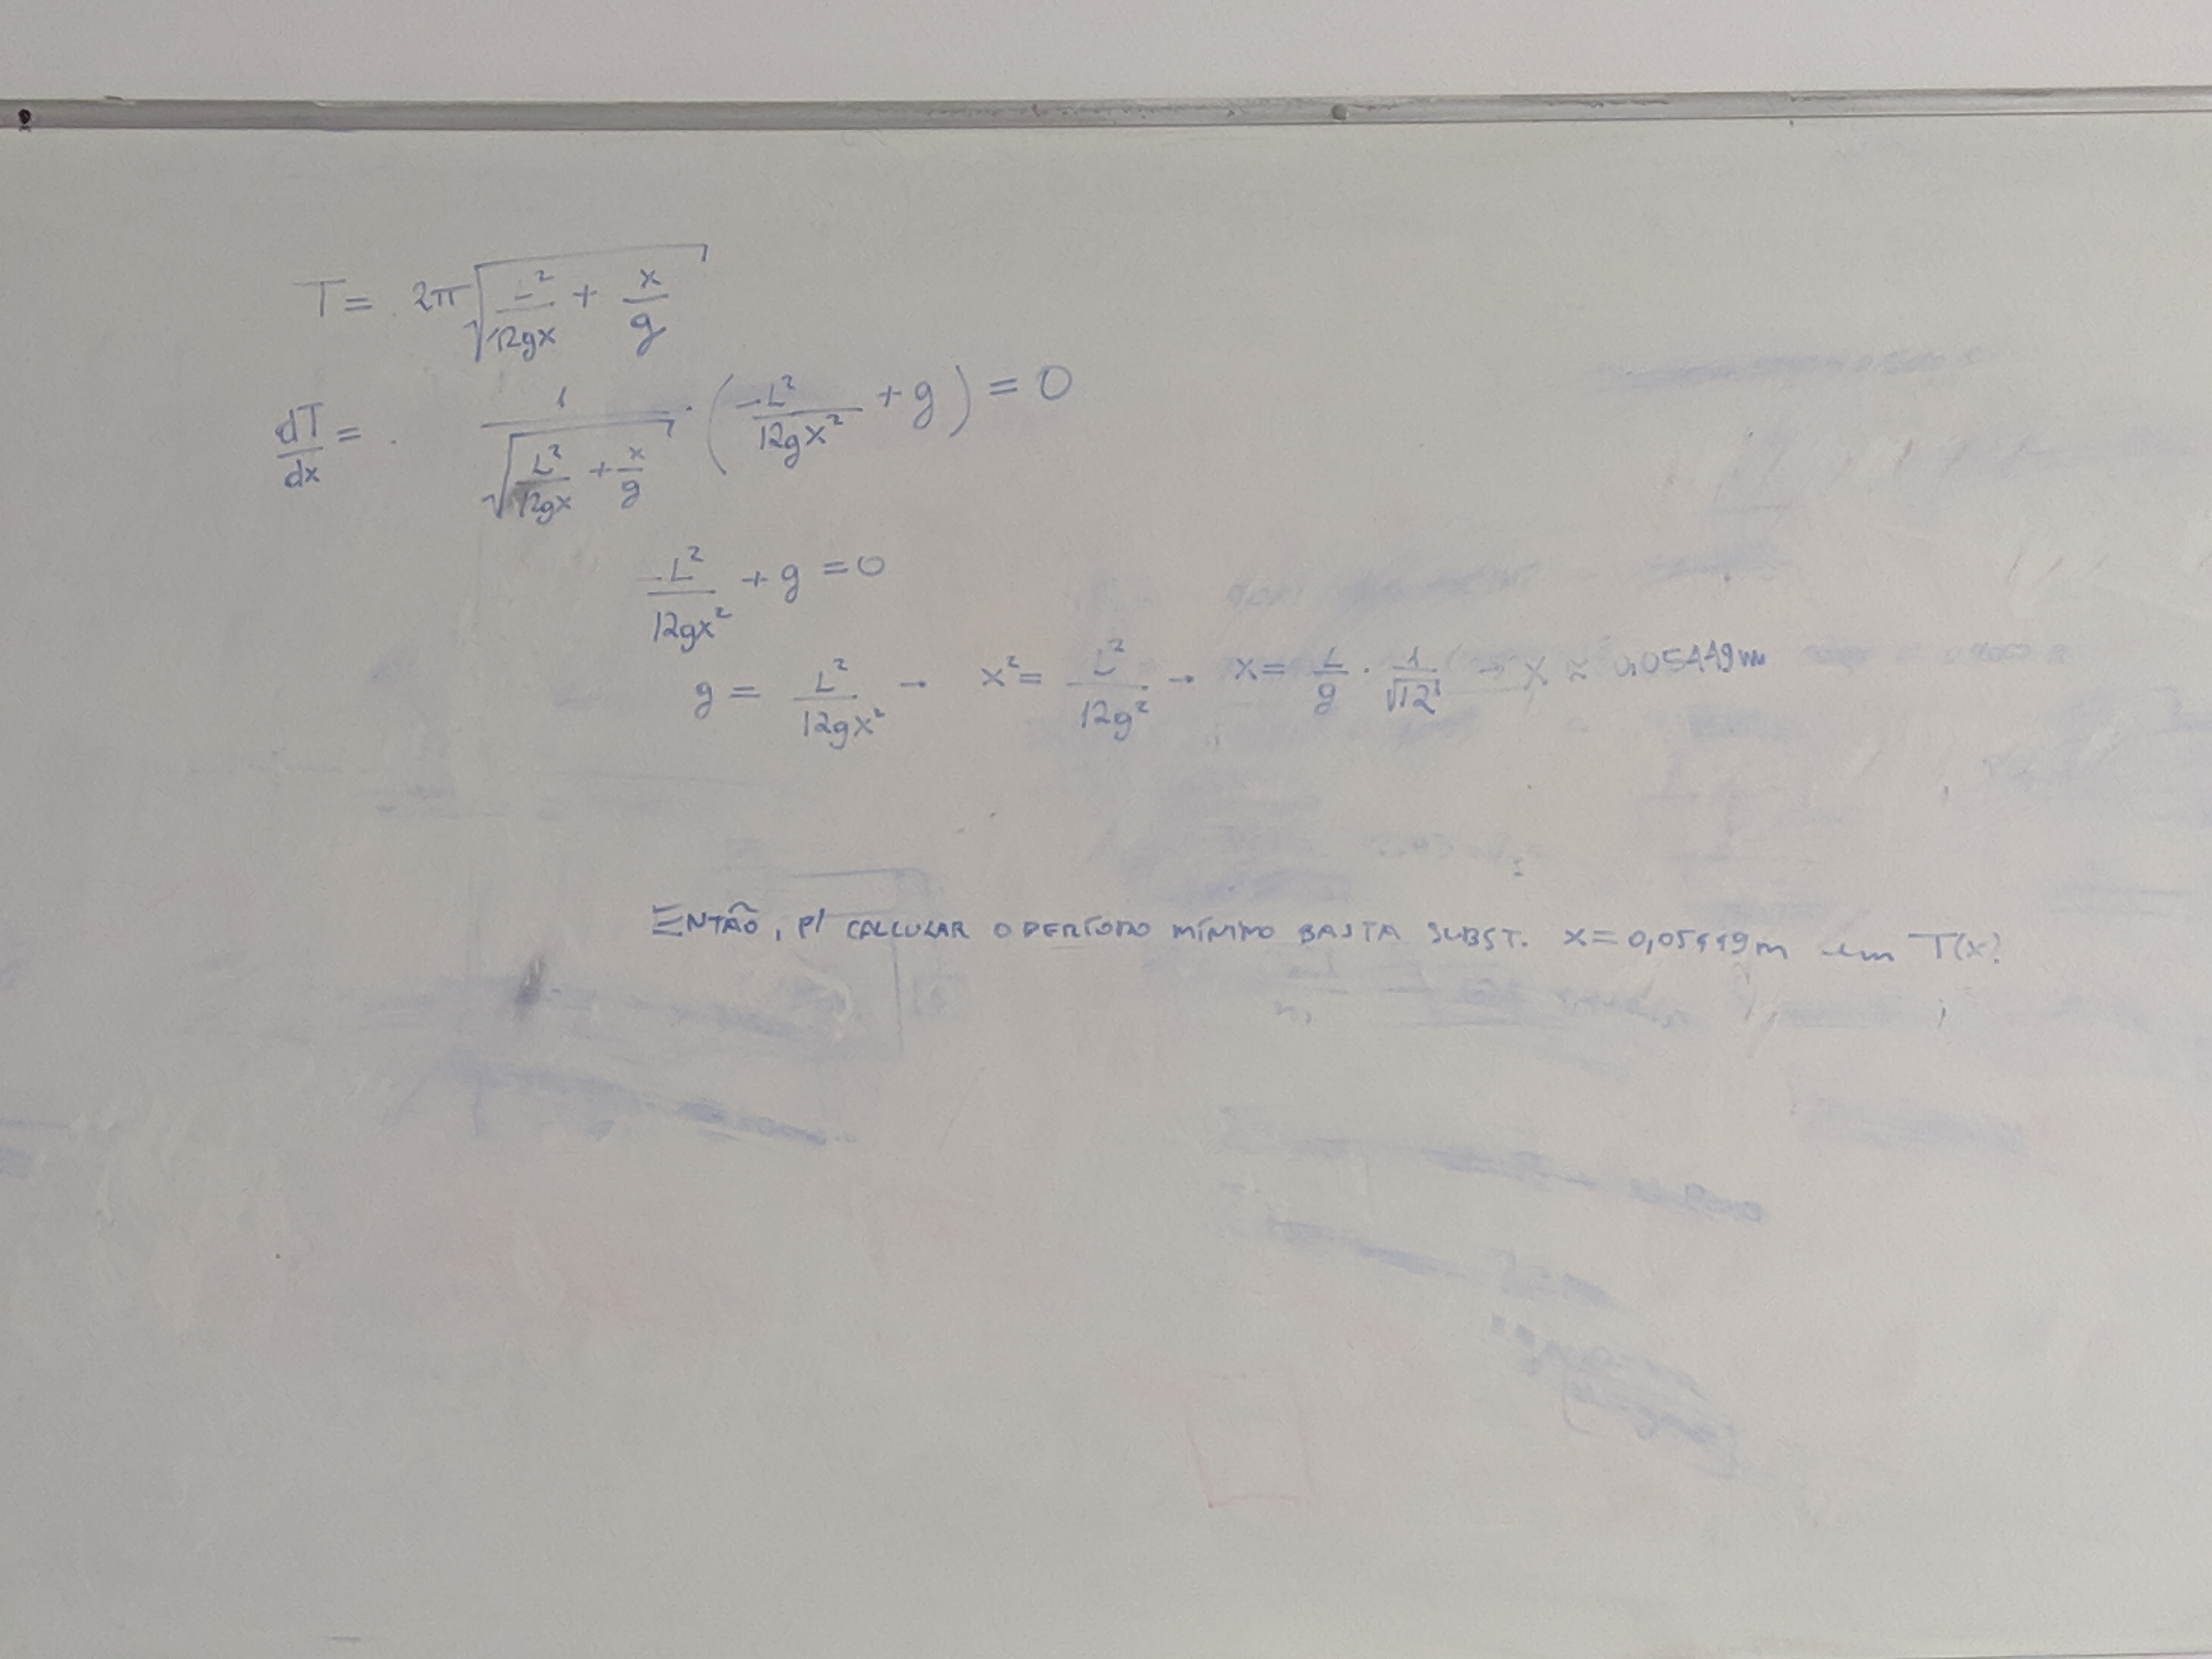 T = 2π √(L²/12gx + x/g)
dT/dx = . 1/√(L²/12gx + x/g) · (-L²/12gx² + g) = 0
-L²/12gx² + g = 0
g = L²/12gx² → x² = L²/12g² → x = L/g · 1/√12 → x ≈ 0,05449m
ENTÃO, P/ CALCULAR O PERÍODO MÍNIMO BASTA SUBST. x = 0,05449m em T(x).